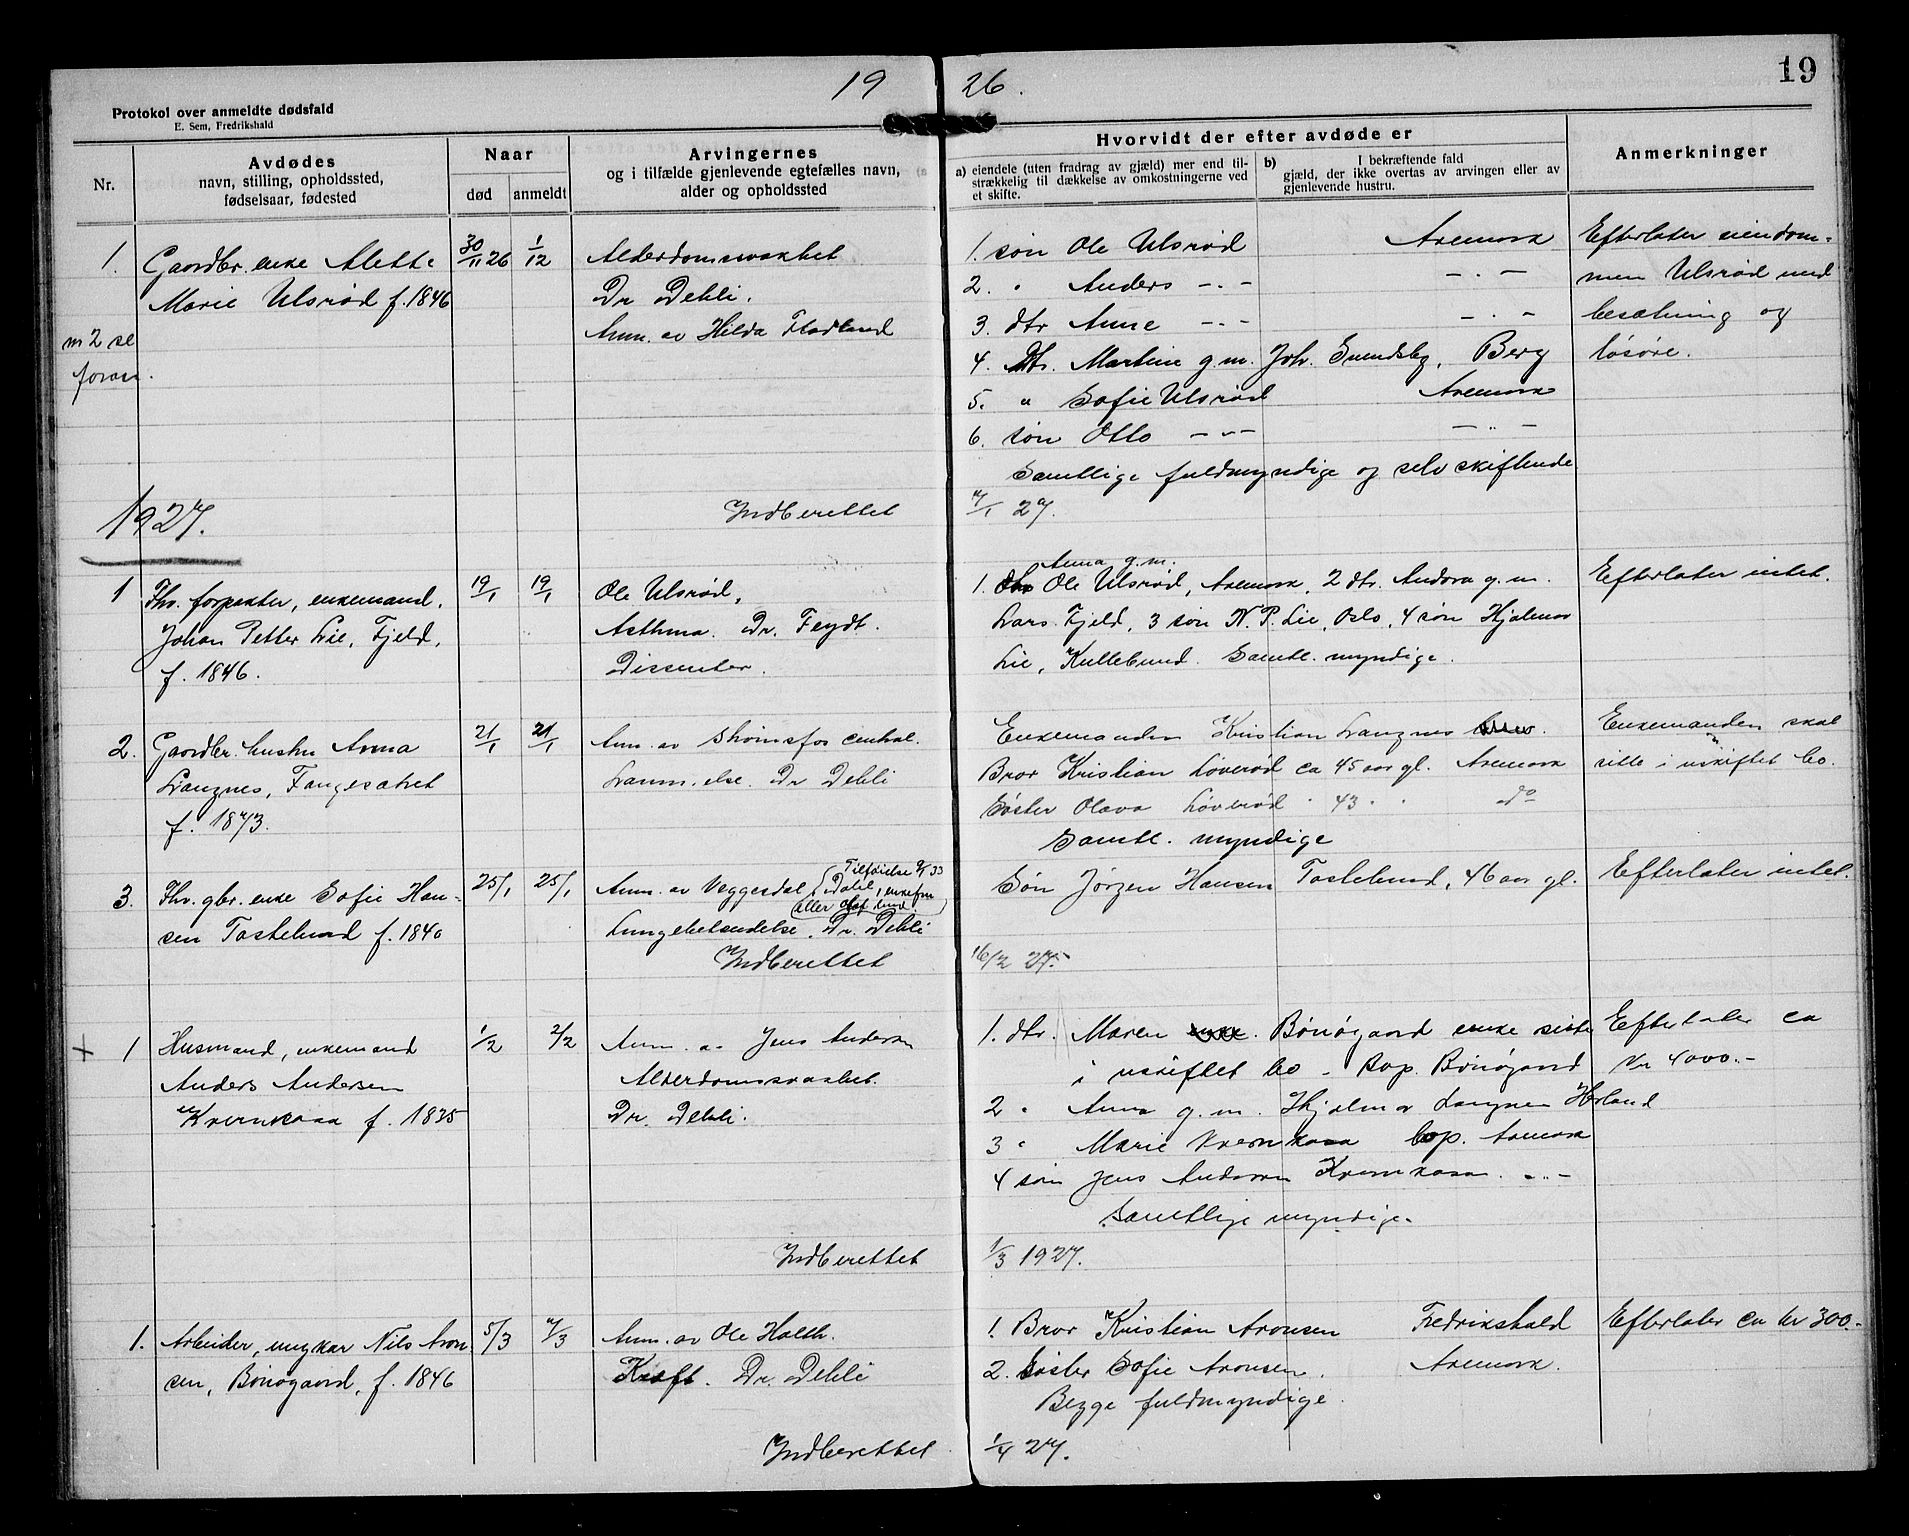 19 26.
19
Protokol over anmeldte dødsfald
E. Sem, Fredrikshald
Nr.
Avdødes
navn, stilling, opholdssted,
fødselsaar, fødested
Naar
død
anmeldt
Arvingernes
og i tilfælde gjenlevende egtefælles navn,
alder og opholdssted
Hvorvidt der efter avdøde er
a) eiendele (uten fradrag av gjæld) mer end til-
strækkelig til dækkelse av omkostningerne ved
et skifte.
b) I bekræftende fald
gjæld, der ikke overtas av arvingen eller av
gjenlevende hustru.
Anmerkninger
1. Gaardbr. enke Alette
Marie Ulsrød f. 1846
m 2 se
foran.
30/11 26
1/12
Alderdomssvakhet
Dr Dehli.
Anm. av Hilda Fladland
1. søn Ole Ulsrød Aremark
2. " Anders -"- -"-
3. dtr Anne -"- -"-
4. Dtr. Martine g.m. Joh. Svendsby, Berg
5. " Sofie Ulsrød Aremark
6. søn Otto -"- -"-
Samtlige fuldmyndige og selvskiftende
Efterlater eiendom-
men Ulsrød med
besætning og
løsøre.
Indberettet 7/1 27.
1927.
1 Fhv. forpakter, enkemand,
Johan Petter Lie, Fjeld,
f. 1846.
19/1
19/1
Ole Ulsrød,
Asthma. Dr. Feydt.
Dissenter.
Anna g.m.
1. dtr Ole Ulsrød, Aremark, 2 dtr. Andora g.m.
Lars Fjeld, 3 søn N.P. Lie, Oslo, 4 søn Hjalmar
Lie, Kullebund. Samtl. myndige.
Efterlater intet.
2. Gaardbr. hustru Anna
Langnes, Fangesætret
f. 1873.
21/1
21/1
Anm. av Strømsfos central.
Dr Dehli
Enkemanden Kristian Langnes
Bror Kristian Løverød ca 45 aar gl. Aremark
Søster Olava Løverød " 43 " " do
Samtl. myndige
Enkemanden skal
sitte i uskiftet bo.
3. Fhv. gbr. enke Sofie Han-
sen Tostelund f. 1840
25/1
25/1
Tilføielse 9/5 33
Anm. av Veggesdal
eller Olaf Lund
Lungebetændelse. Dr. Dehli
Søn Jørgen Hansen Tostelund, 46 aar gl.
Efterlater intet.
Indberettet 16/2 27.
+ 1 Husmand, enkemand
Anders Andersen
Kvernkaasa f. 1835
1/2
2/2
Anm. av Jens Andersen
Alderdomssvakhet.
Dr. Dehli.
1. dtr. Maren Bønøgaard enke sitte
i uskiftet bo - Bop. Bønøgaard
2 " Anna g.m. Hjalmar Langnes Hærland
3 " Marie Kvernkasa bop. Aremark
4 søn Jens Andersen Kvernkasa. -"-
Samtlige myndige.
Efterlater ca
Kr 4000.-
Indberettet 1/3 1927.
1. Arbeider, ungkar Nils Aron
sen, Bønøgaard, f. 1846
5/3
7/3
Anm. av Ole Holth.
Kræft. Dr. Dehli
1. Bror Kristian Aronsen Fredrikshald
2. Søster Sofie Aronsen. Aremark.
Begge fuldmyndige.
Efterlater ca kr 300.-
Indberettet 1/4 27.